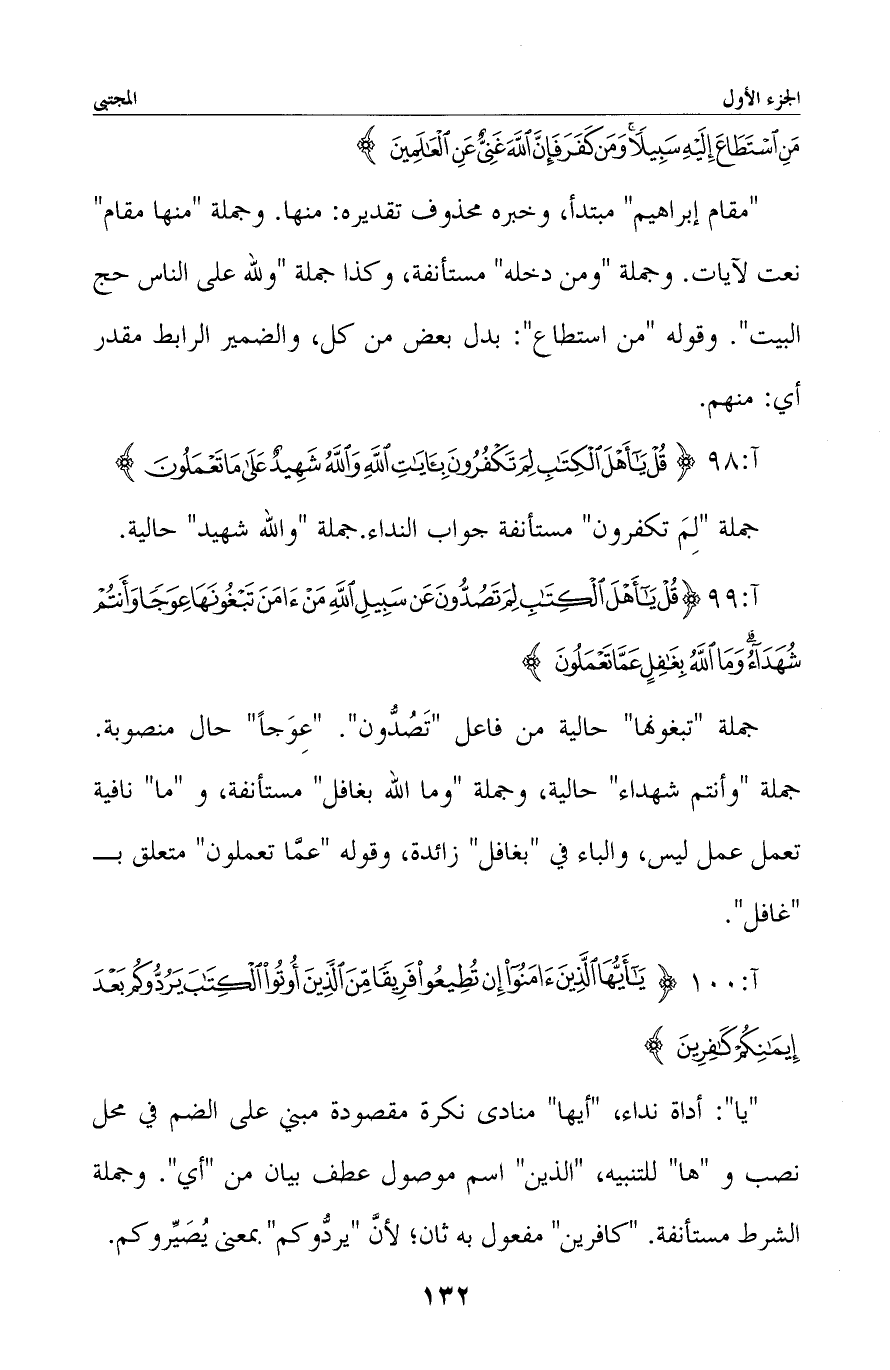 الجزء الأول المجتبى
مَنِ ٱسْتَطَاعَ إِلَيْهِ سَبِيلًاۚ وَمَن كَفَرَ فَإِنَّ ٱللَّهَ غَنِيٌّ عَنِ ٱلْعَٰلَمِينَ ﴾
"مقام إبراهيم" مبتدأ، وخبره محذوف تقديره: منها. وجملة "منها مقام"
نعت لآيات. وجملة "ومن دخله" مستأنفة، وكذا جملة "ولله على الناس حج
البيت". وقوله "من استطاع": بدل بعض من كل، والضمير الرابط مقدر
أي: منهم.
آ:٩٨ ﴿ قُلْ يَٰٓأَهْلَ ٱلْكِتَٰبِ لِمَ تَكْفُرُونَ بِـَٔايَٰتِ ٱللَّهِ وَٱللَّهُ شَهِيدٌ عَلَىٰ مَا تَعْمَلُونَ ﴾
جملة "لِمَ تكفرون" مستأنفة جواب النداء.جملة "والله شهيد" حالية.
آ:٩٩ ﴿ قُلْ يَٰٓأَهْلَ ٱلْكِتَٰبِ لِمَ تَصُدُّونَ عَن سَبِيلِ ٱللَّهِ مَنْ ءَامَنَ تَبْغُونَهَا عِوَجًا وَأَنتُمْ
شُهَدَآءُۗ وَمَا ٱللَّهُ بِغَٰفِلٍ عَمَّا تَعْمَلُونَ ﴾
جملة "تبغونها" حالية من فاعل "تَصُدُّون". "عِوَجاً" حال منصوبة.
جملة "وأنتم شهداء" حالية، وجملة "وما الله بغافل" مستأنفة، و "ما" نافية
تعمل عمل ليس، والباء في "بغافل" زائدة، وقوله "عمَّا تعملون" متعلق بـــ
"غافل".
آ:١٠٠ ﴿ يَٰٓأَيُّهَا ٱلَّذِينَ ءَامَنُوٓا۟ إِن تُطِيعُوا۟ فَرِيقًا مِّنَ ٱلَّذِينَ أُوتُوا۟ ٱلْكِتَٰبَ يَرُدُّوكُم بَعْدَ
إِيمَٰنِكُمْ كَٰفِرِينَ ﴾
"يا": أداة نداء، "أيها" منادى نكرة مقصودة مبني على الضم في محل
نصب و "ها" للتنبيه، "الذين" اسم موصول عطف بيان من "أي". وجملة
الشرط مستأنفة. "كافرين" مفعول به ثان؛ لأنَّ "يردُّوكم" بمعنى يُصَيِّروكم.
١٣٢